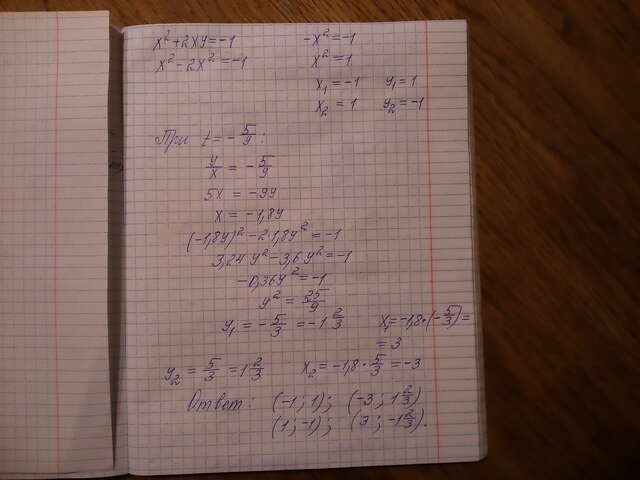 x² + 2xy = -1   -x² = -1
x² - 2x² = -1   x² = 1
x₁ = -1   y₁ = 1
x₂ = 1   y₂ = -1
При t = -5/9 :
y/x = -5/9
5x = -9y
x = -1,8y
(-1,8y)² - 2·1,8y² = -1
3,24y² - 3,6y² = -1
-0,36y² = -1
y² = 25/9
y₁ = -5/3 = -1 2/3   x₁ = -1,8·(-5/3) =
= 3
y₂ = 5/3 = 1 2/3   x₂ = -1,8·5/3 = -3
Ответ: (-1; 1); (-3; 1 2/3)
(1; -1); (3; -1 2/3).